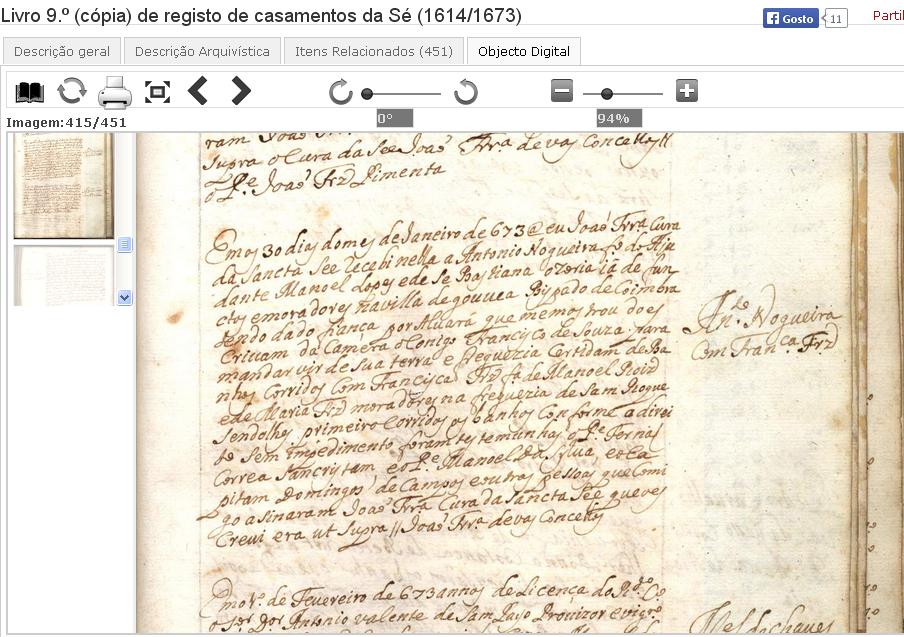 Livro 9.º (cópia) de registo de casamentos da Sé (1614/1673)
Gosto
11
Partil
Descrição geral
Descrição Arquivística
Itens Relacionados (451)
Objecto Digital
0°
94%
Imagem:415/451
ram Joaõ
supra o Cura da See Joaõ Frra de vas Concellos
o Pe Joaõ Frz Pimenta
Em os 30 dias do mes de Janeiro de 673@ eu Joaõ Frra Cura
da Sancta See recebi nella a Antonio Nogueira fo do Aju
dante Manoel Lopes e de Se Bastiana ja de fun
ctos e moradores na villa de gouvea Bispado de Coimbra
tendo dado fiança por Alvará que me mostrou do es
Crivam da Camera o Conigo Francisco de Souza para
mandar vir de sua terra e freguezia Certidam de Ba
nhos Corridos Com Francisca Frz fa de Manoel
e de Maria Frz moradores na freguezia de Sam Roque
Sendolhes primeiro Corridos os banhos Conforme a direi
to Sem impedimento foram testemunhas o Pe
Correa Sancristam e o Pe Manoel da Silva, e o Ca
pitam Domingos de Campos e outras pessoas que Comi
go asinaram Joaõ Frra Cura da Sancta See que o es
Crevi era ut Supra // Joaõ Frra de vas Concellos
Anto Nogueira
Com Franca Frz
Em o 1º de Fevereiro de 673 annos de Licença do
o Sor Dor Antonio valente de Sam Payo Provizor e vigro